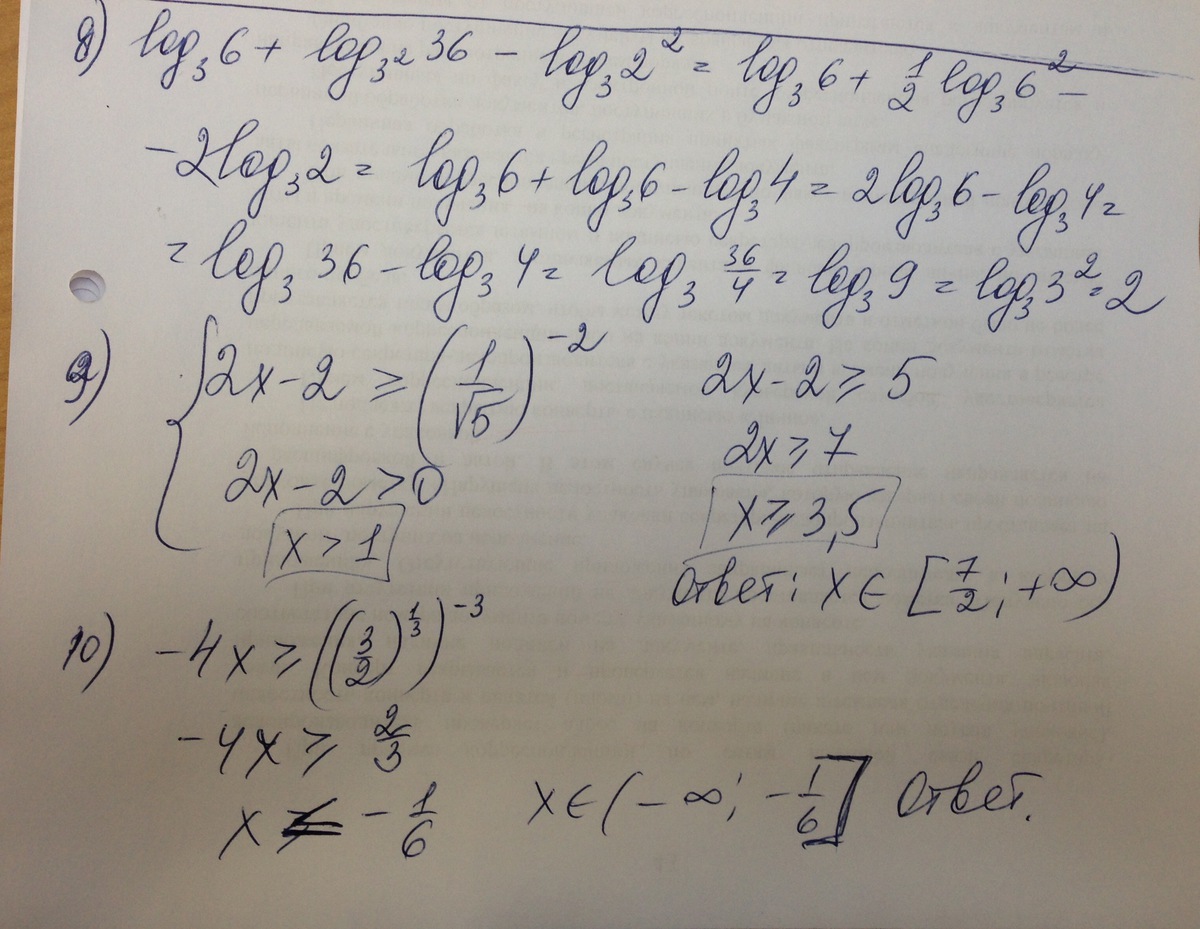 8) log₃6 + log₃²36 − log₃2² = log₃6 + 1/2 log₃6² −
−2log₃2 = log₃6 + log₃6 − log₃4 = 2log₃6 − log₃4 =
= log₃36 − log₃4 = log₃ 36/4 = log₃9 = log₃3² = 2
9) { 2x−2 ≥ (1/√5)⁻² 2x−2 ≥ 5
2x−2 > 0 2x ≥ 7
x > 1 x ≥ 3,5
Ответ: x ∈ [7/2; +∞)
10) −4x ≥ ((3/2)^(1/3))⁻³
−4x ≥ 2/3
x ≤ −1/6 x ∈ (−∞; −1/6] Ответ.